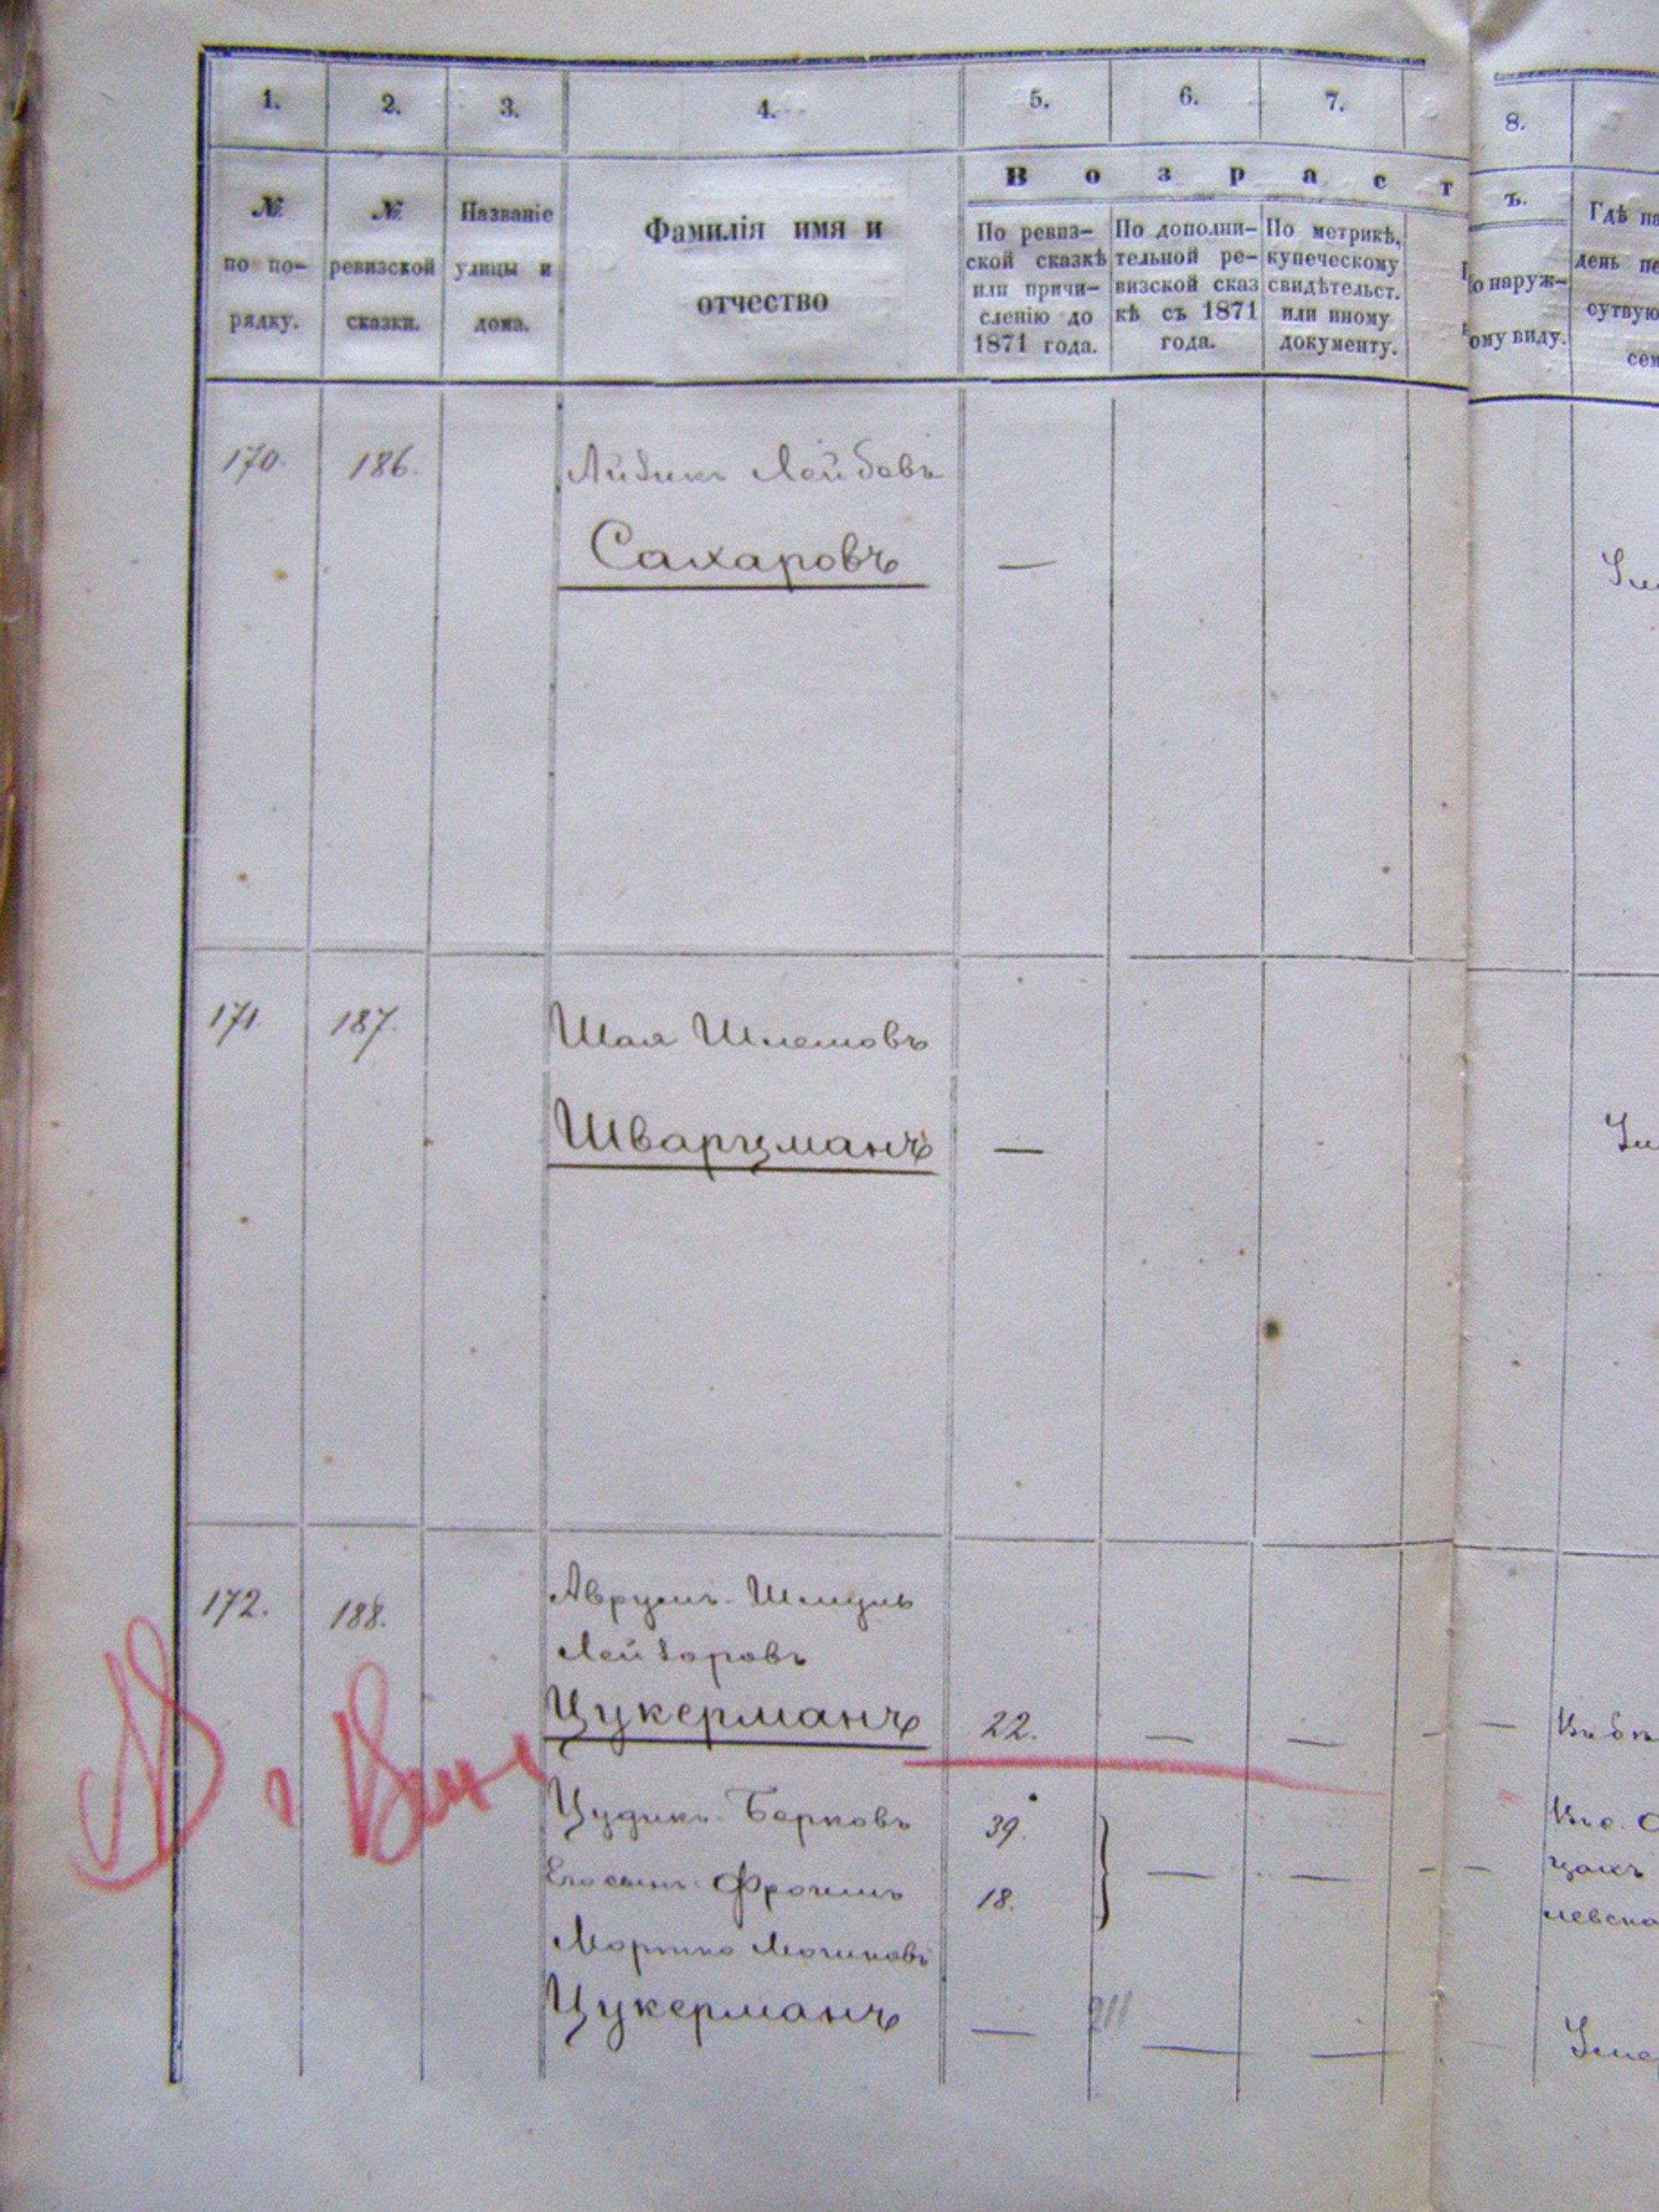 1. 2. 3. 4. 5. 6. 7. 8.
№ по по- рядку.
№ ревизской сказки.
Названіе улицы и дома.
Фамилія имя и
отчество
В о з р а с т ъ.
По ревиз-
ской сказкѣ
или причи-
сленію до
1871 года.
По дополни-
тельной ре-
визской сказ
кѣ съ 1871
года.
По метрикѣ,
купеческому
свидѣтельст.
или иному
документу.
о наруж-
ому виду.
Гдѣ
день
170. 186. Айзикъ Лейбовъ
Сахаровъ —
171 187. Шая Шлемовъ
Шварцманъ —
172. 188. Аврумъ-Шмуль
Лейзоровъ
Цукерманъ 22. — — — —
Цудикъ Берковъ 39.
Фроимъ 18. — — — —
Цукерманъ — — —